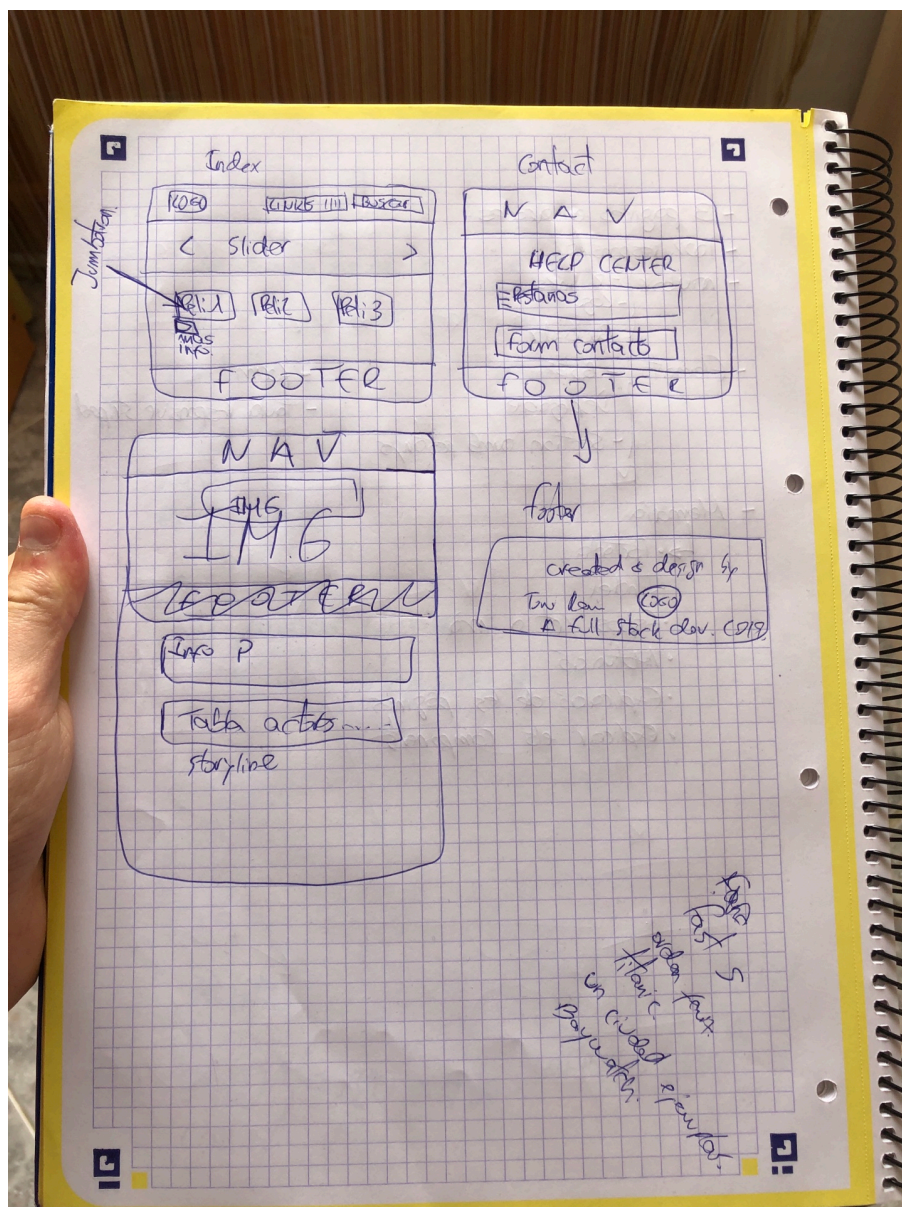 Index
LOGO LINKS Buscar
< Slider >
Jumboton
Peli1 Peli2 Peli3
mas
info
FOOTER
Contact
NAV
HELP CENTER
Pestañas
Form contacto
FOOTER
NAV
IMG
IMG
FOOTER
Info P
Tabla actores.....
storyline
footer
created & design by
LOGO
A full stack dev.
fast 5
titanic
un ciudad ejemplar.
Baywatch.